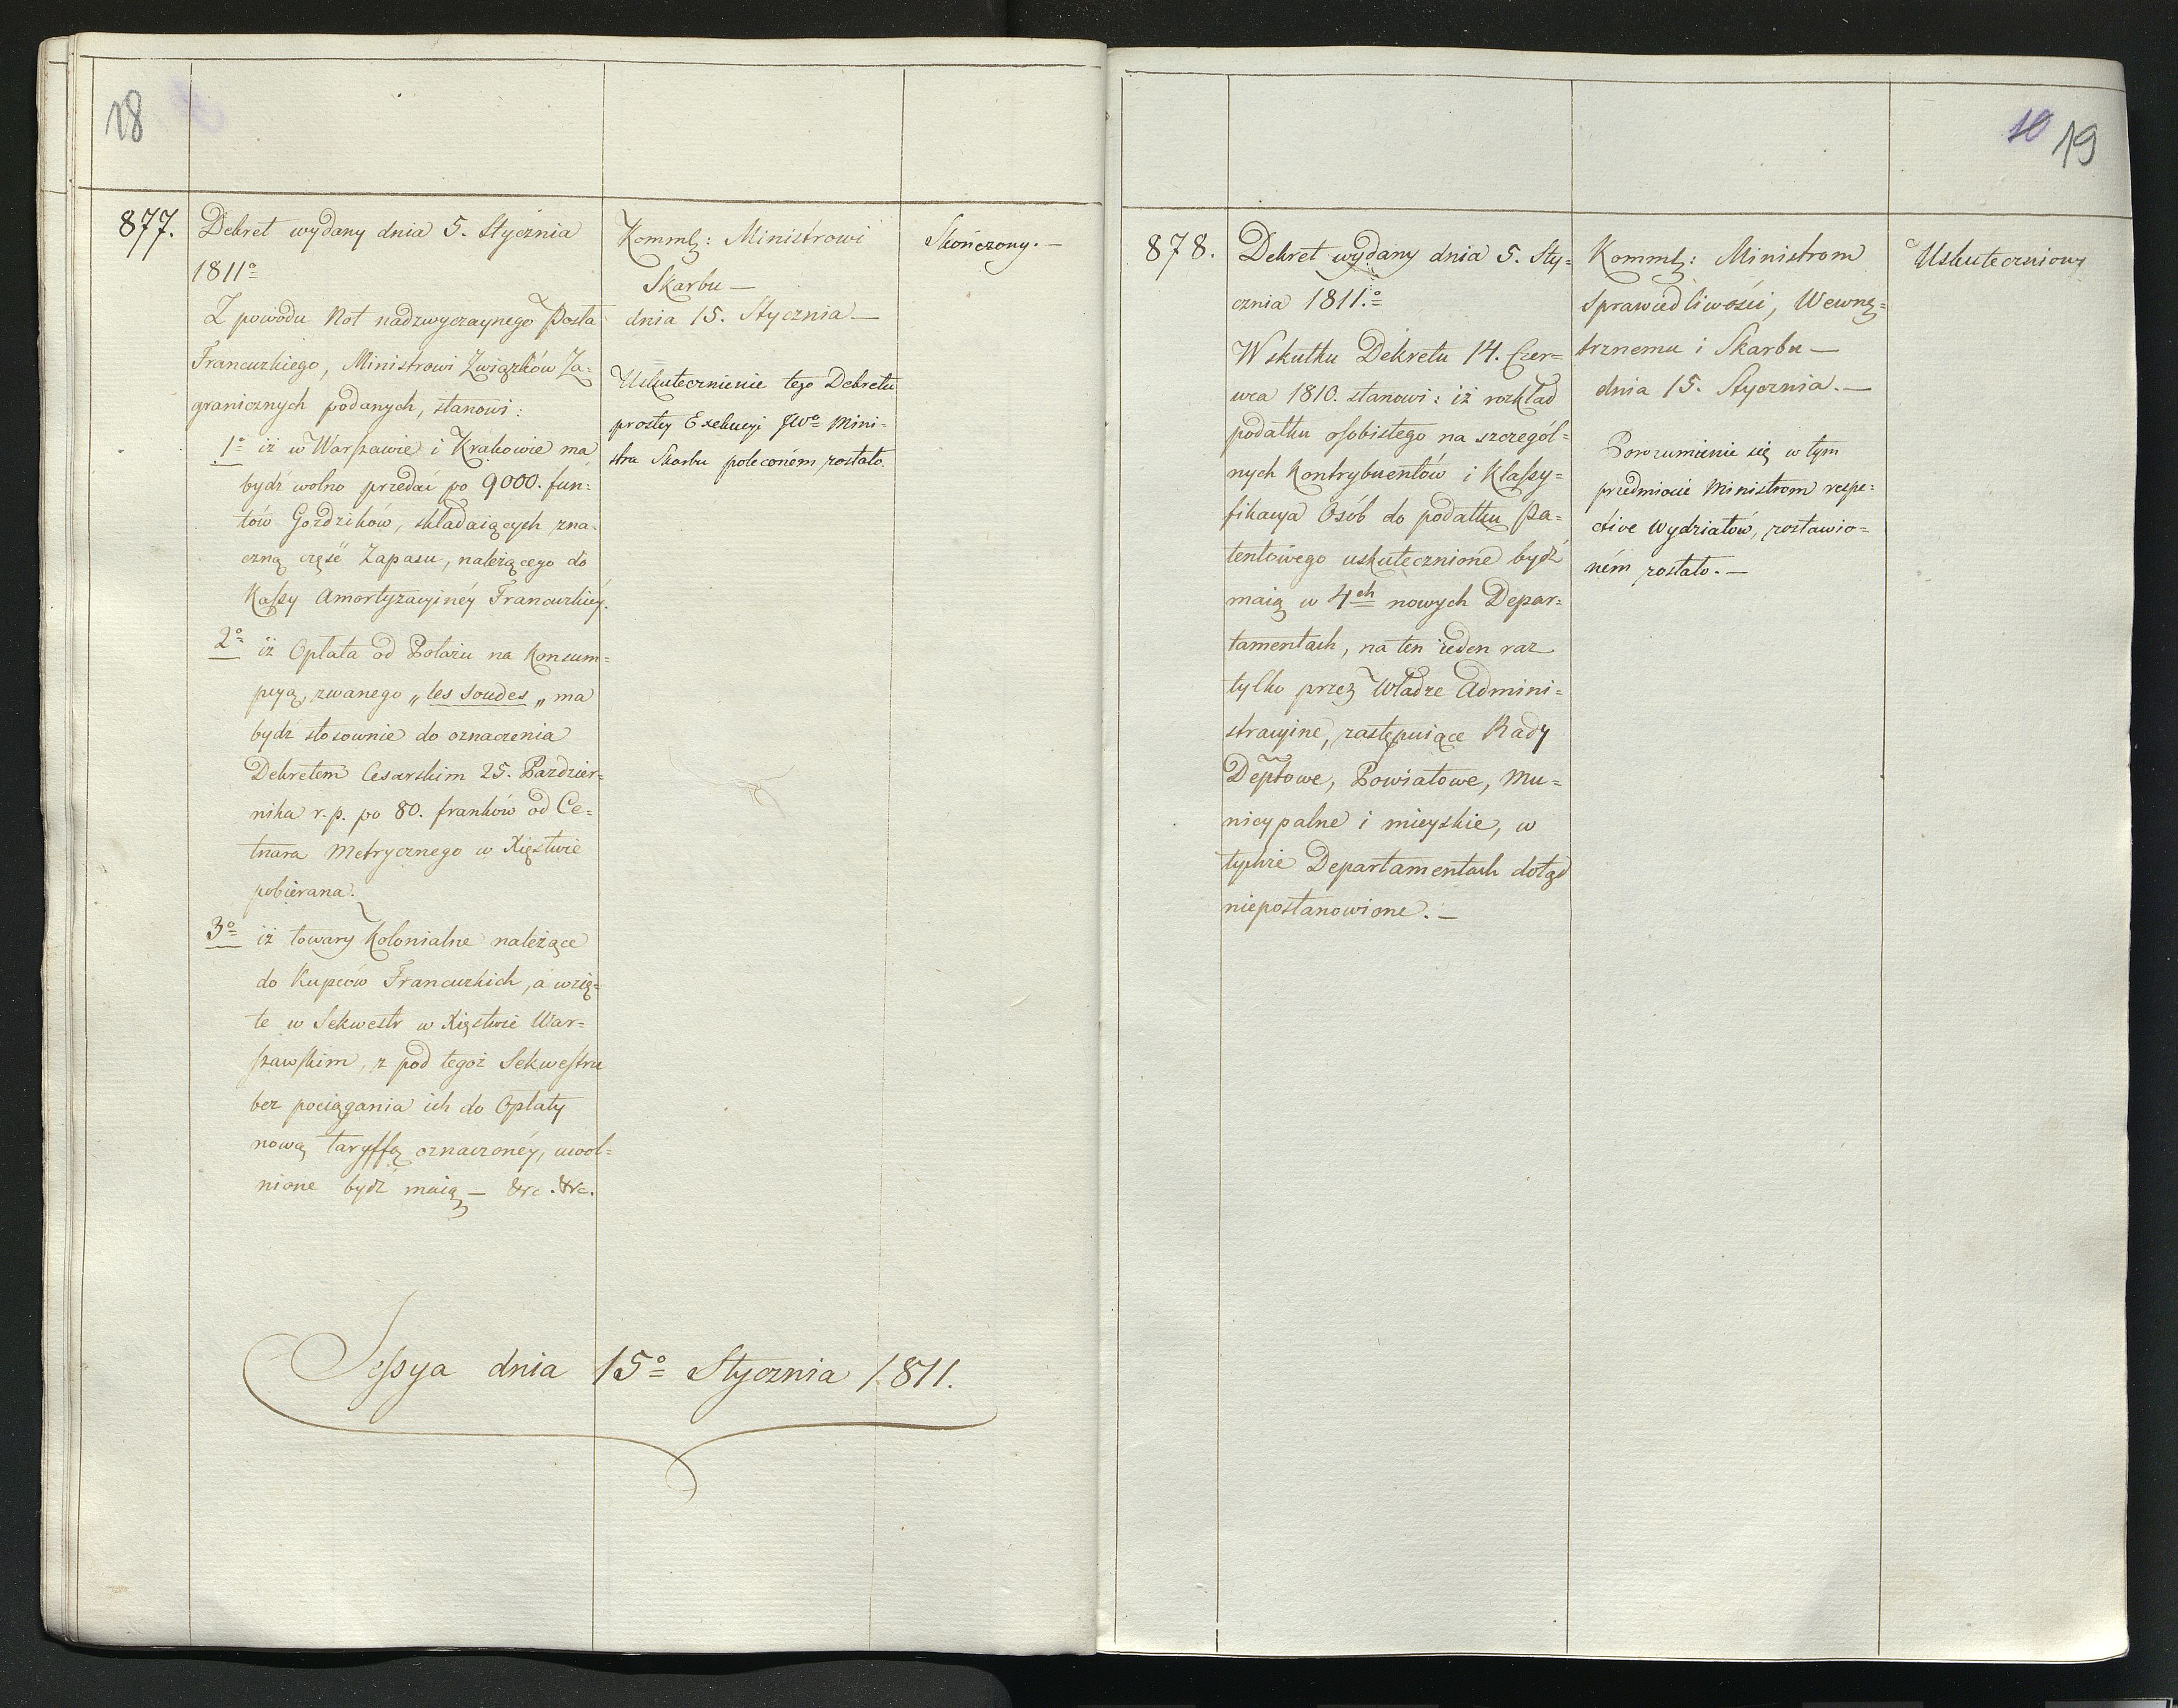 18
877.
Dekret wydany dnia 5. Stycznia
1811º
Z powodu Not nadzwyczaynego Posła
Francuzkiego, Ministrowi Związków Za=
granicznych podanych, stanowi:
1º iż w Warszawie i Krakowie ma
bydź wolno przedać po 9000. fun=
tów Gozdzików, składaiących zna=
czną część Zapasu, należącego do
Kassy Amortyzacyinéy Francuzkiéy.
2º iż Opłata od Potażu na Konsum=
pcyą, zwanego „les soudes„ ma
bydź stosownie do oznaczenia
Dekretem Cesarskim 25. Pazdzier=
nika r. p. po 80. franków od Ce=
tnara Metrycznego w Xięstwie
pobierana.
3º iż towary Kolonialne należące
do Kupców Francuzkich, a wzię=
te w Sekwestr w Xięstwie War=
szawskim, z pod tegoż Sekwestru
bez pociągania ich do Opłaty
nową taryffą oznaczonéy, uwol=
nione bydź maią — &c. &c.
Kommk: Ministrowi
Skarbu —
dnia 15. Stycznia —
Uskutecznienie tego Dekretu
prostey Exekucyi JWº Mini=
stra Skarbu poleconém zostało.
Skończony. —
Sessya dnia 15º Stycznia 1811.
10 19
878.
Dekret wydany dnia 5. Sty=
cznia 1811.º
W skutku Dekretu 14. Czer=
wca 1810. stanowi: iż rozkład
podatku osobistego na szczegól=
nych Kontrybuentów i Klassy=
fikacya Osób do podatku Pa=
tentowego uskutecznione bydź
maią w 4ch nowych Depar=
tamentach, na ten ieden raz
tylko przez Władze Admini=
stracyine, zastępuiące Rady
Deptowe, Powiatowe, Mu=
nicypalne i mieyskie, w
tychże Departamentach dotąd
niepostanowione. —
Kommk: Ministrom
Sprawiedliwości, Wewnę=
trznemu i Skarbu —
dnia 15. Stycznia. —
Porozumienie się w tym
przedmiocie Ministrom respe=
ctive Wydziałów, zostawio=
ném zostało. —
Uskuteczniony